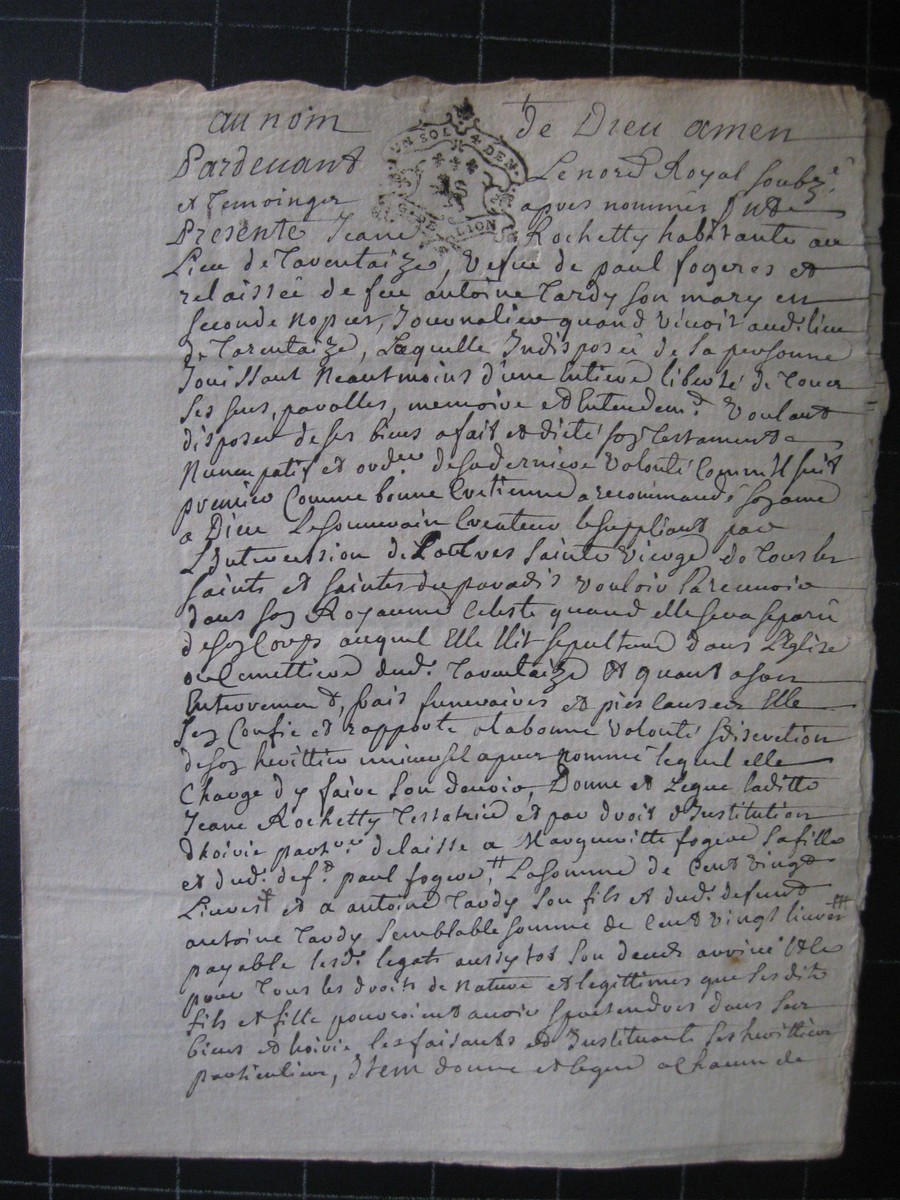 au nom de Dieu amen
UN SOL 4 DEN.
G. DE LION
Pardevant Le nore Royal soubzé
et temoinger apres nommés fut
Presente Jeane Rochetty habitante au
Lieu de Tarentaize, vefue de paul fogeres et
relaissée de feu antoine Tardy son mary en
seconde nopces, Journaliere quand vivoit audt lieu
de Tarentaize, Laquelle Indisposée de sa personne
Jouissant Neautmoins d'une Entiere liberté de Tour
ses sens, parolles, memoire et Entendemt Voulant
disposer de ses biens a fait et dicté soy Testament
Nuncupatif et ordre de sa derniere volonté Comm'Il suit
premier Comme bonne Cretienne a recommandé soy ame
a Dieu Le Souverain Createur le suppliant par
L'Intercession de La Tres Sainte Vierge de Tous les
saints et saintes du paradis vouloir La recevoir
dans soy Royaume Celeste quand elle sera separée
de soy Corps auquel Elle Elit sepulture dans L'Eglise
ou Cemettiere dudt Tarentaize Et quant a son
Enterrement, frais funeraires et pies causes Elle
s'ey Confie et rapporte a la bonne volonté & discretion
de soy herittier universel apres nommé lequel elle
Charge d'y faire son devoir, Donne et Legue laditte
Jeane Rochetty Testatrice et par droit d'Institution
d'hoirie partre delaisse a Margueritte fogere sa fille
et dudt deft paul fogere, La somme de Cent vingt
Livres et a antoine Tardy son fils et dudt defunt
antoine Tardy semblable somme de Cent vingt livres
payable lesdts legats aussytot son deceds arrivé Et ce
pour Tous les droits de Nature et legittimes que sesdits
fils et fille pouroient avoir & pretendres dans ses
biens et hoirie les faisants et Instituants ses herittiers
particuliers, Item donne et legue a chacun de